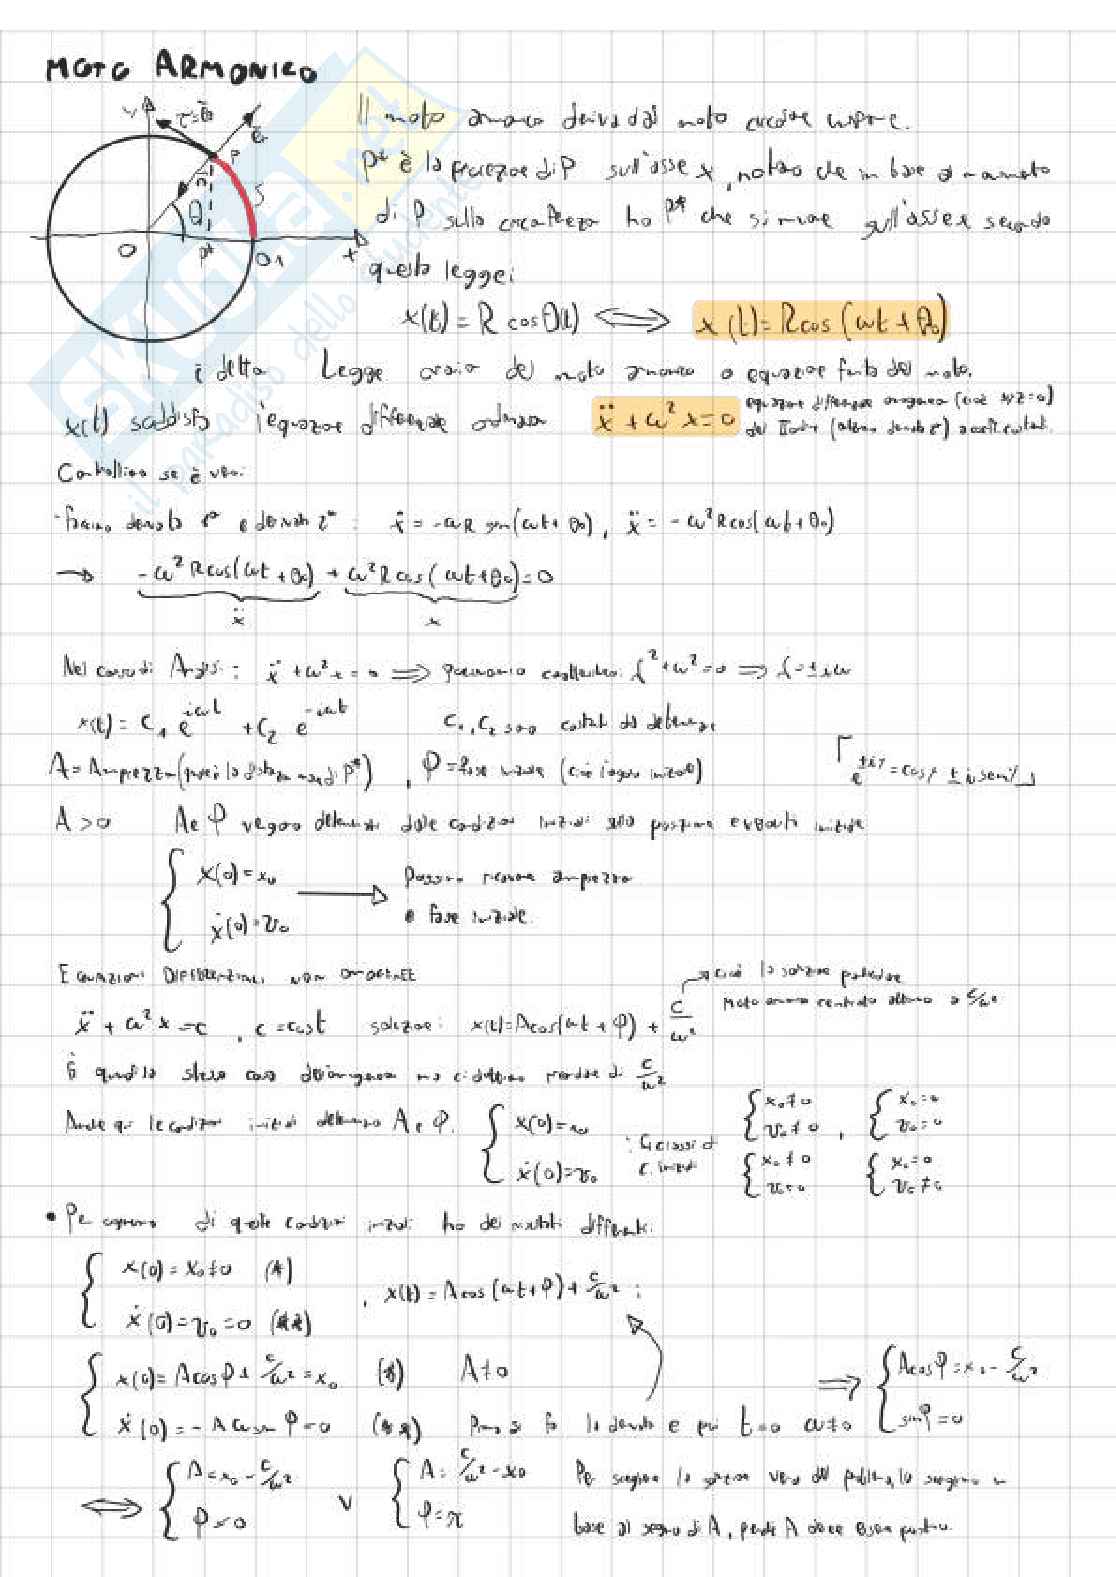 MOTO ARMONICO
Il moto armonico deriva dal moto circolare uniforme.
P* è la proiezione di P sull'asse x, notiamo che in base al movimento
di P sulla circonferenza ho P* che si muove sull'asse x secondo
questa legge:
x(t) = R cosθ(t) ⟺ x(t) = R cos(ωt + θ₀)
è detta Legge oraria del moto armonico o equazione finita del moto.
x(t) soddisfa l'equazione differenziale ordinaria ẍ + ω²x = 0 equazione differenziale omogenea
del II ordine
Controlliamo se è vero:
- Facciamo derivata 1ª e derivata 2ª : ẋ = -ωR sen(ωt + θ₀), ẍ = -ω²R cos(ωt + θ₀)
→ -ω²R cos(ωt + θ₀) + ω²R cos(ωt + θ₀) = 0
ẍ x
Nel corso di Analisi: ẍ + ω²x = 0 ⟹ polinomio caratteristico: λ² + ω² = 0 ⟹ λ = ± iω
x(t) = C₁ e^{iωt} + C₂ e^{-iωt} C₁, C₂ sono costanti da determinare
A = Ampiezza (quindi la distanza max di P*), φ = fase iniziale (cioè l'angolo iniziale)
A > 0 A e φ vengono determinati dalle condizioni iniziali sulla posizione e velocità iniziale
{ x(0) = x₀
ẋ(0) = v₀ → Possiamo ricavare ampiezza
e fase iniziale.
EQUAZIONI DIFFERENZIALI NON OMOGENEE
cioè la soluzione particolare
Moto armonico centrato attorno a c/ω²
ẍ + ω²x = c, c = cost soluzione: x(t) = A cos(ωt + φ) + c/ω²
È quindi la stessa cosa dell'omogenea ma c/ω²
Anche qui le condizioni iniziali determinano A e φ. { x(0) = x₀ ẋ(0) = v₀ : 4 classi di c. iniziali
{ x₀ ≠ 0 v₀ ≠ 0 , { x₀ = 0 v₀ = 0
{ x₀ ≠ 0 v₀ = 0 { x₀ = 0 v₀ ≠ 0
• Per ognuna di queste condizioni iniziali ho dei risultati differenti.
{ x(0) = x₀ ≠ 0 (*)
ẋ(0) = v₀ = 0 (**) , x(t) = A cos(ωt + φ) + c/ω² :
{ x(0) = A cosφ + c/ω² = x₀ (*) A ≠ 0
ẋ(0) = -Aω sen φ = 0 (**) Prima si fa la derivata e poi t = 0 ω ≠ 0
⟹ { A cosφ = x₀ - c/ω²
sinφ = 0
⟺ { A = x₀ - c/ω² φ = 0 ∨ { A = c/ω² - x₀ φ = π
Per scegliere la soluzione vera del problema, la scegliamo in
base al segno di A, perché A deve essere positivo.